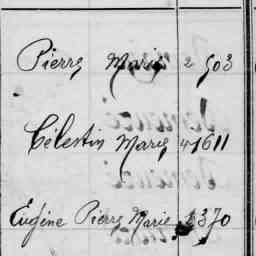 Pierre Marie 2 903
Célestin Marie 41611
Eugène Pierre Marie 370